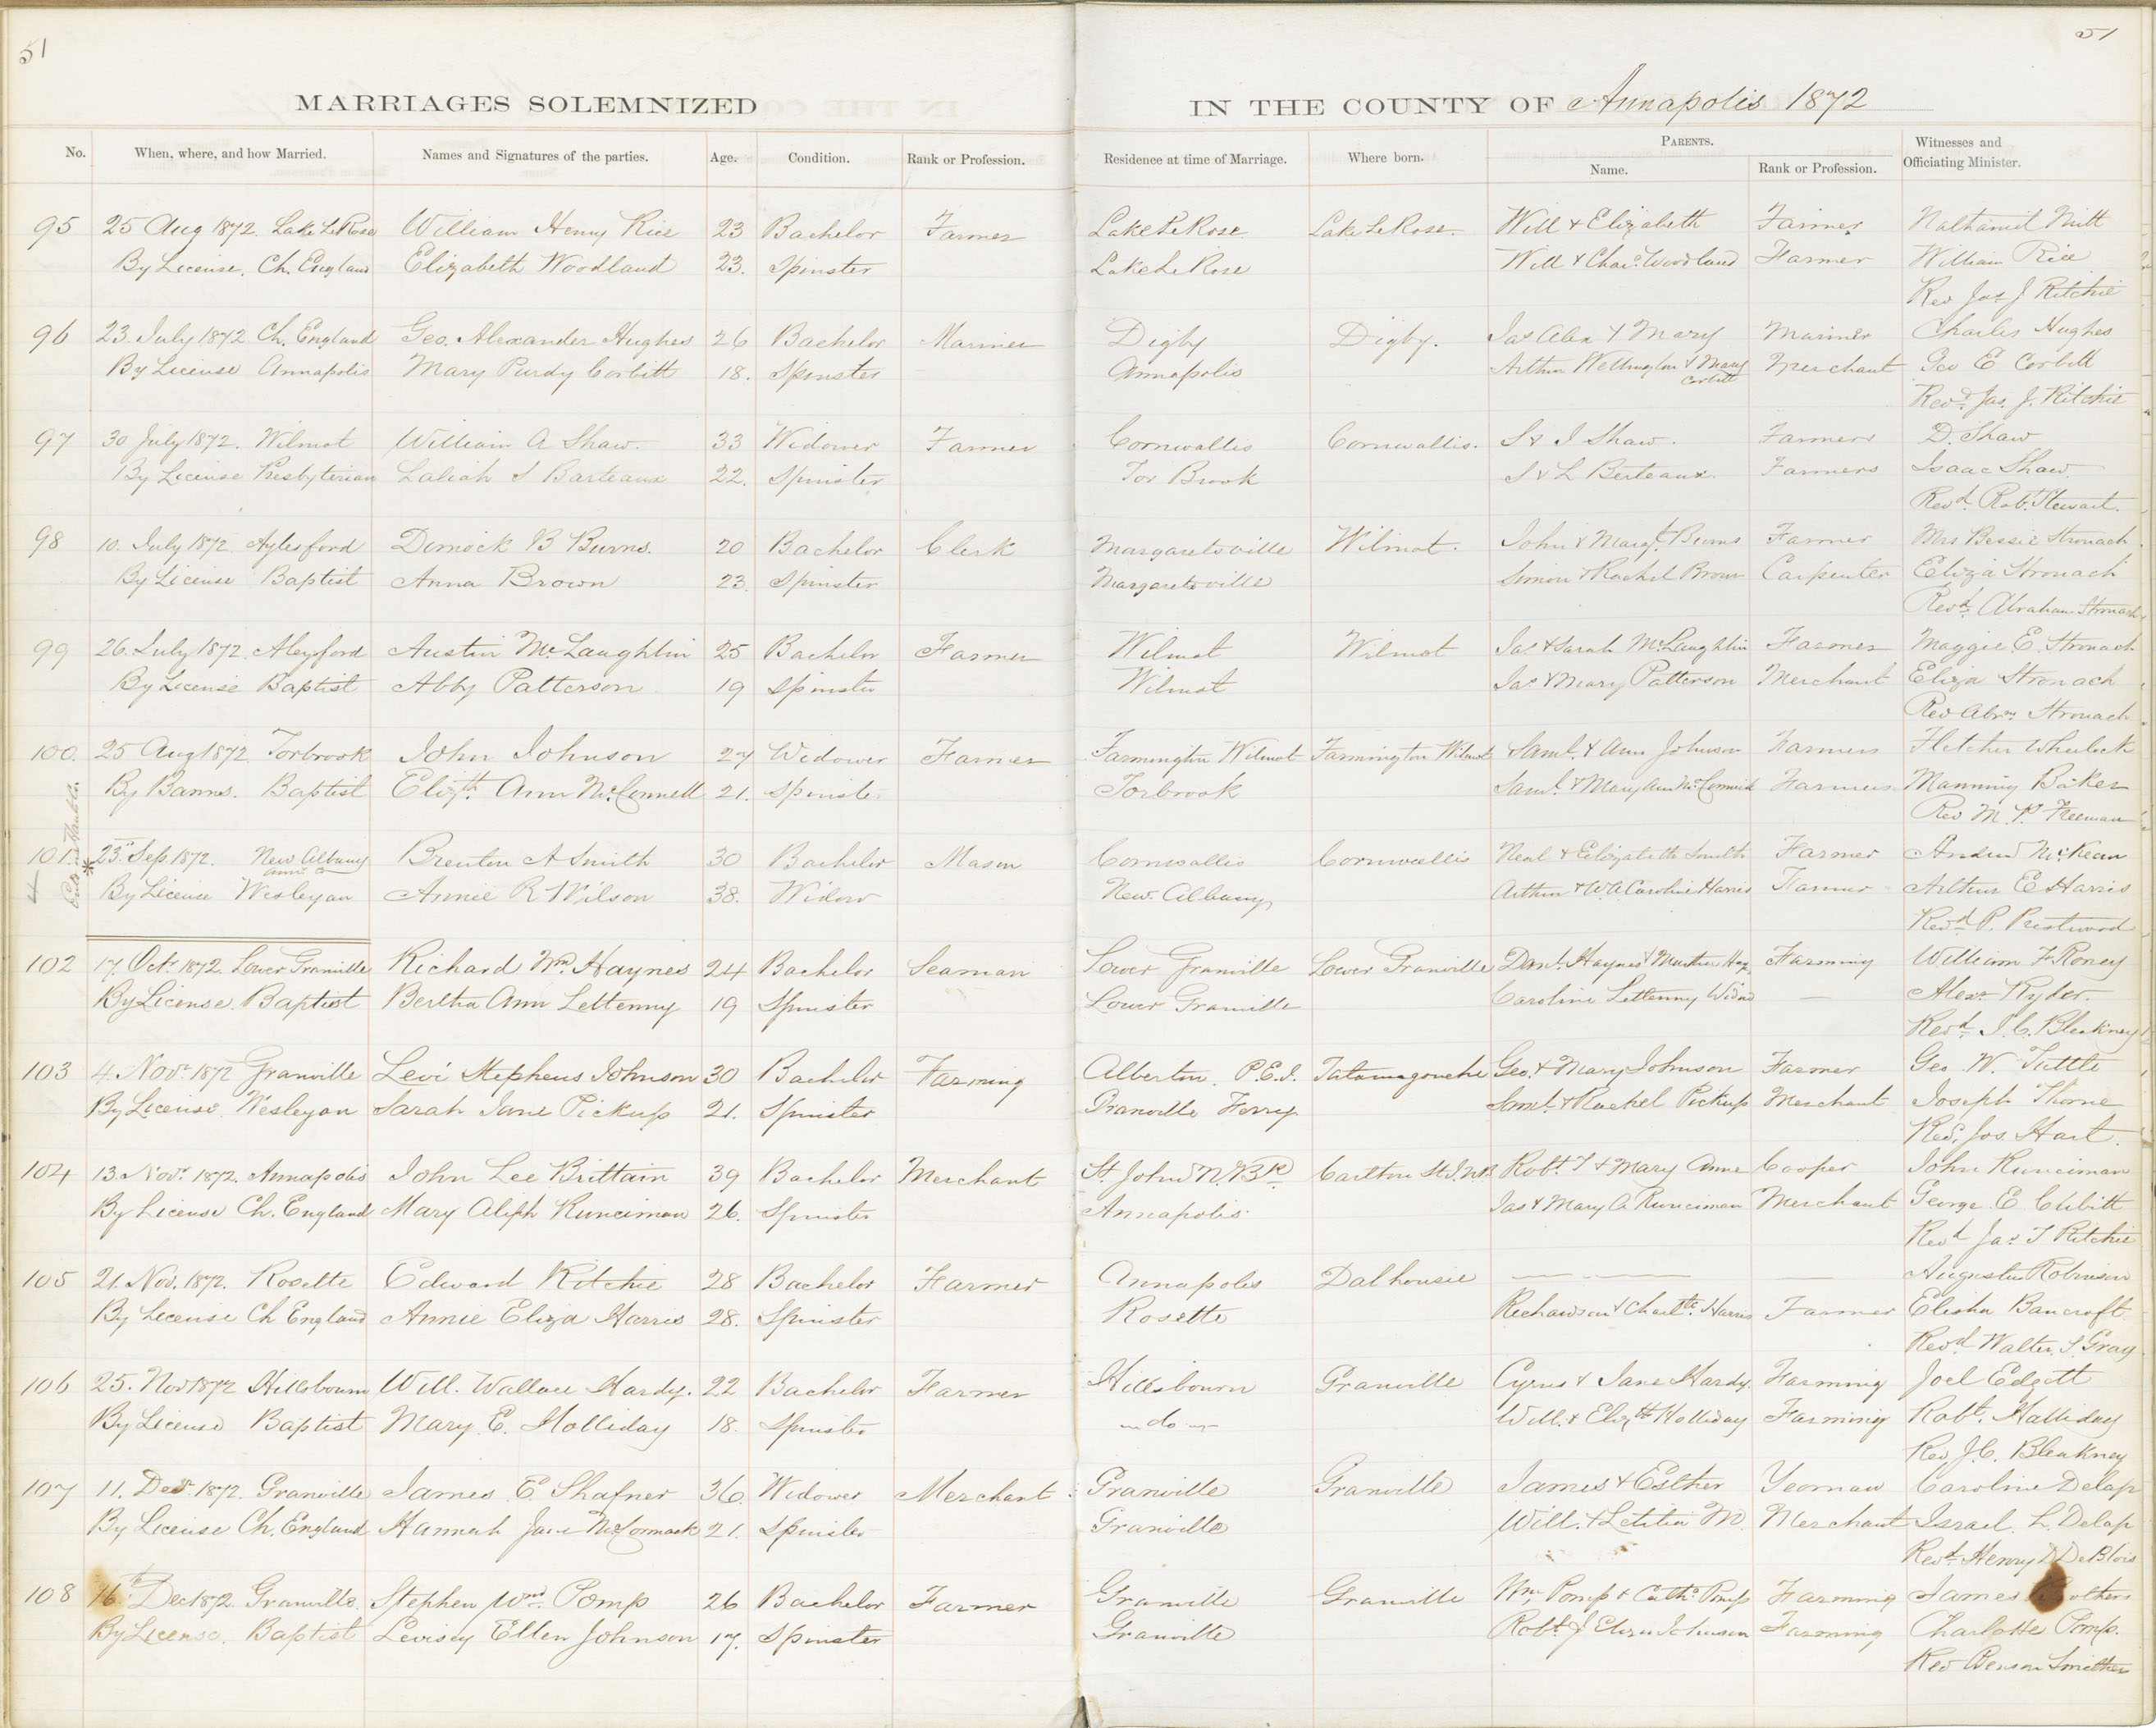 51
51
MARRIAGES SOLEMNIZED IN THE COUNTY OF Annapolis 1872
No. When, where, and how Married. Names and Signatures of the parties. Age. Condition. Rank or Profession. Residence at time of Marriage. Where born. PARENTS. Name. Rank or Profession. Witnesses and Officiating Minister.
95 25 Aug 1872. Lake LeRose William Henry Rice 23 Bachelor Farmer Lake LeRose. Lake LeRose. Will & Elizabeth Farmer Nathaniel
By License. Ch. England Elizabeth Woodland 23. Spinster Lake Le Rose Will & Woodland Farmer William Rice
Rev Jas J Ritchie
96 23. July 1872 Ch. England Geo. Alexander Hughes 26 Bachelor Mariner Digby Digby. Jas Alex & Mary Mariner Charles Hughes
By License Annapolis Mary Purdy Corbitt 18. Spinster Annapolis Arthur Wellington & Mary Corbitt Merchant Geo E Corbitt
Revd. Jas. J. Ritchie
97 30 July 1872. Wilmot William A Shaw. 33 Widower Farmer Cornwallis Cornwallis. S & I Shaw. Farmers D. Shaw
By License Presbyterian Laleah S Barteaux 22. Spinster Tor Brook S & L Berteaux. Farmers Isaac Shaw
Revd. Rob. Stewart.
98 10. July 1872 Aylesford Dimock B Burns. 20 Bachelor Clerk Margaretsville Wilmot. John & Margt. Burns Farmer Mrs Bessie Stronach
By License Baptist Anna Brown 23. Spinster Margaretsville Simon & Rachel Brown Carpenter Eliza Stronach
Revd. Abraham Stronach
99 26. July 1872. Aleysford Austin McLaughlin 25 Bachelor Farmer Wilmot Wilmot Jas & Sarah McLaughlin Farmer Maggie E. Stronach
By License Baptist Abby Patterson 19 Spinster Wilmot Jas & Mary Patterson Merchant Eliza Stronach
Rev Abrm Stronach
100. 25 Aug 1872 Torbrook John Johnson 27 Widower Farmer Farmington Wilmot Farmington Wilmot Saml. & Ann Johnson Farmers Fletcher Wheelock
By Banns. Baptist Elizth. Ann McConnell 21. Spinster Torbrook Saml. & Mary Ann Farmers Manning Baker
Rev M. P. Freeman
101. * 23rd Sep. 1872. New Albany Annc Co Brenton A Smith 30 Bachelor Mason Cornwallis Cornwallis Neal & Elizabeth Smith Farmer Andw McKean
By License Wesleyan Annie R Wilson 38. Widow New Albany Arthur & Caroline Harris Farmer Arthur E Harris
Revd P. Prestwood
102 17. Octr 1872. Lower Granville Richard Wm. Haynes 24 Bachelor Seaman Lower Granville Lower Granville Danl. Haynes & Hay. Farming William F Roney
By License. Baptist Bertha Ann Lettenny 19 Spinster Lower Granville Caroline Lettenny Widw — Alexr Ryder.
Revd. I. C. Bleakney
103 4 Novr 1872 Granville Levi Stephens Johnson 30 Bachelor Farming Alberton. P.E.I. Tatamagouche Geo. & Mary Johnson Farmer Geo W. Tuttle
By License Wesleyan Sarah Jane Pickup 21. Spinster Granville Ferry. Saml. & Rachel Pickup Merchant Joseph Thorne
Rev. Jos. Hart.
104 13. Novr. 1872. Annapolis John Lee Brittain 39 Bachelor Merchant St. John N.Bk. Carlton St. J. N.B Robt. T & Mary Anne Cooper John Runciman
By License Ch. England Mary Aliph Runciman 26. Spinster Annapolis. Jas & Mary A Runciman Merchant George E Cibitt
Revd Jas J Ritchie
105 21. Nov. 1872. Rosette Edward Ritchie 28 Bachelor Farmer Annapolis Dalhousie — — — — Augustus Robinson
By License Ch England Annie Eliza Harris 28. Spinster Rosette Richardson & Charltte. Harris Farmer Elisha Bancroft
Revd Walter S Gray
106 25. Nov 1872 Hillsbourn Will. Wallace Hardy. 22 Bachelor Farmer Hillsbourn Granville Cyrus & Jane Hardy. Farming Joel Edgett
By License Baptist Mary E. Holliday 18. Spinster — do — Will. & Elizth Holliday Farming Robt. Halliday
Rev J. C. Bleakney
107 11. Decr. 1872. Granville James E Shafner 36. Widower Merchant Granville Granville James & Esther Yeoman Caroline Delap
By License Ch. England Hannah Jane McCormack 21. Spinster Granville Will. & Letitia M. Merchant Israel L. Delap
Revd. Henry D DeBlois
108 16th. Dec 1872. Granville. Stephen Wm. Pomp 26 Bachelor Farmer Granville Granville Wm. Pomp & Cathe. Pomp Farming James
By License. Baptist Levisey Ellen Johnson 17. Spinster Granville Robt. & Eliza Johnson Farming Charlotte Pomp.
Rev Benson Smithers